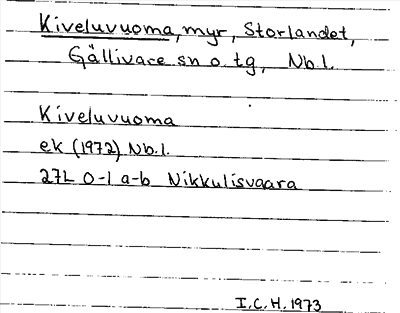 Kiveluvuoma, myr, Storlandet,
Gällivare sn o. tg, Nb.l.
Kiveluvuoma
ek (1972) Nb.l.
27L 0-1 a-b Nikkulisvaara
I.C.H. 1973